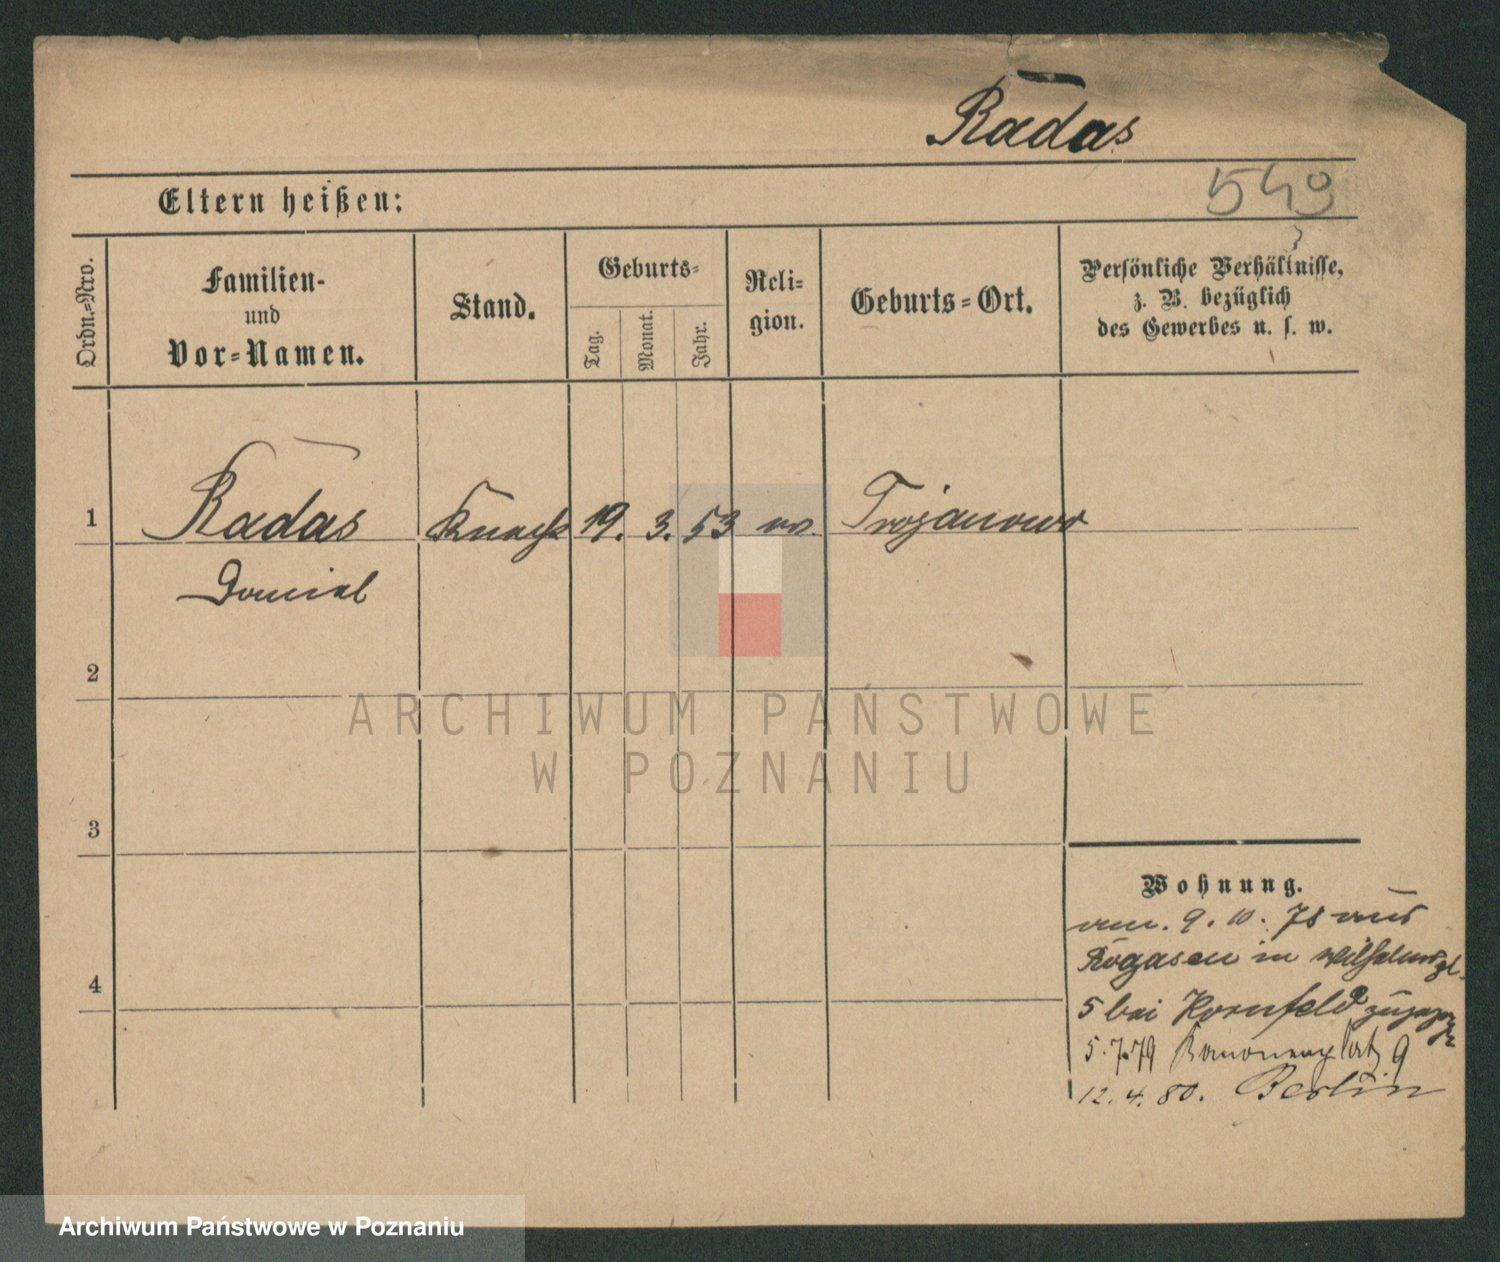 Radas
549
Eltern heißen:
Ordn.-Nro.
Familien-
und
Vor-Namen.
Stand.
Geburts-
Tag.
Monat.
Jahr.
Reli-
gion.
Geburts-Ort.
Persönliche Verhältnisse,
z. B. bezüglich
des Gewerbes u. s. w.
1 Radas Knecht 19. 3. 53 ev. Trojanowo
Daniel
2
ARCHIWUM PAŃSTWOWE
W POZNANIU
3
Wohnung.
am. 9. 10. 78 aus
4
Rogasen in Wilhelmspl.
5 bei Kornfeld
5. 7. 79 Kanonenplatz 9
12. 4. 80. Berlin
Archiwum Państwowe w Poznaniu